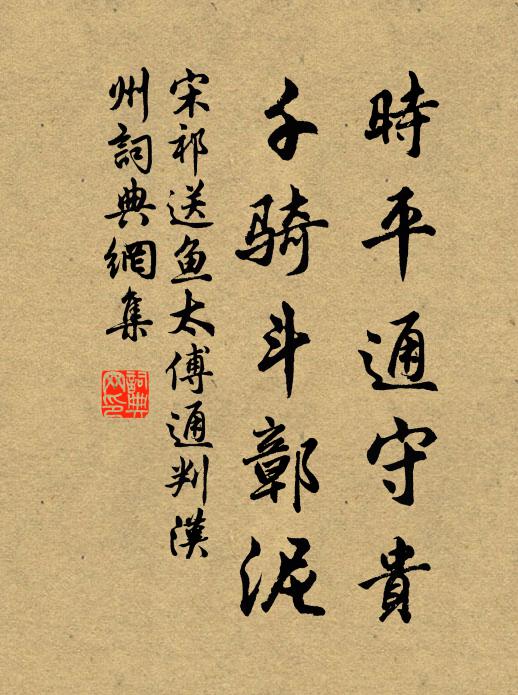 時平通守貴
千骑斗鄣泥
宋祁送鱼太傅通判漢
州詞典網集
詞典網印